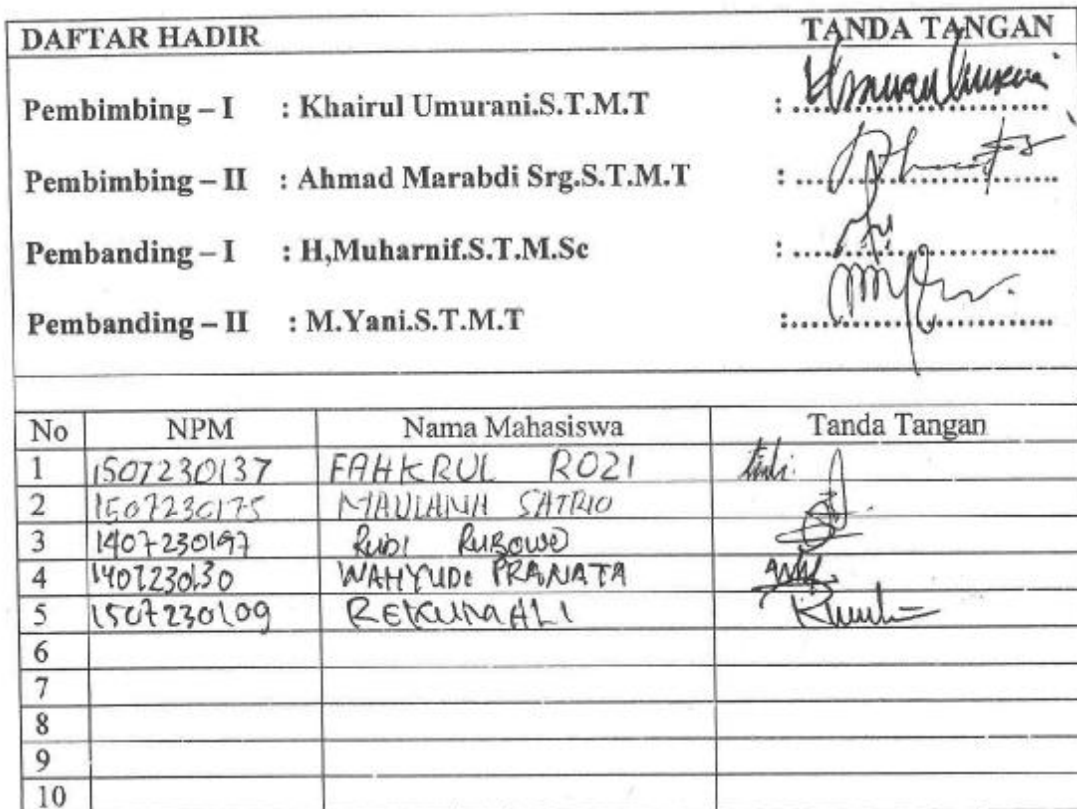 DAFTAR HADIR TANDA TANGAN
Pembimbing – I : Khairul Umurani.S.T.M.T :
Pembimbing – II : Ahmad Marabdi Srg.S.T.M.T :
Pembanding – I : H,Muharnif.S.T.M.Sc :
Pembanding – II : M.Yani.S.T.M.T :
No NPM Nama Mahasiswa Tanda Tangan
1 1507230137 FAHKRUL ROZI
2 1507230175 MAULANA SATRIO
3 1407230197 RUDI RUBOWO
4 1407230130 WAHYUDI PRANATA
5 1507230109 REKUMALI
6
7
8
9
10